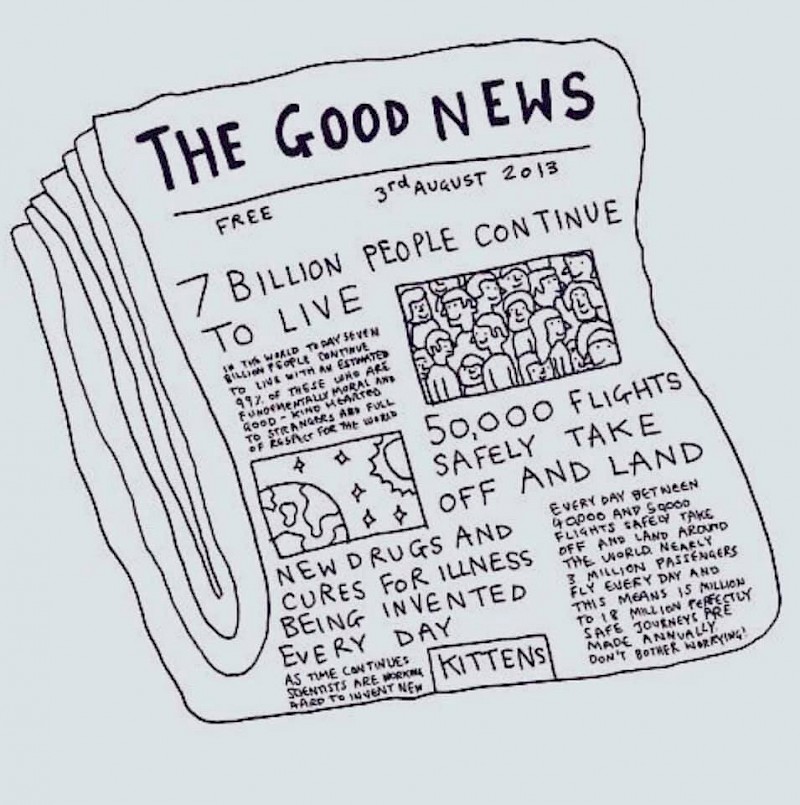 THE GOOD NEWS
FREE
3rd AUGUST 2013
7 BILLION PEOPLE CONTINUE
TO LIVE
IN THE WORLD TODAY SEVEN
BILLION PEOPLE CONTINUE
TO LIVE WITH AN ESTIMATED
99% OF THESE WHO ARE
FUNDEMENTALLY MORAL AND
GOOD-KIND HEARTED
TO STRANGERS AND FULL
OF RESPECT FOR THE WORLD
50,000 FLIGHTS
SAFELY TAKE
OFF AND LAND
EVERY DAY BETWEEN
40,000 AND 50,000
FLIGHTS SAFELY TAKE
OFF AND LAND AROUND
THE WORLD. NEARLY
3 MILLION PASSENGERS
FLY EVERY DAY AND
THIS MEANS 15 MILLION
TO 18 MILLION PERFECTLY
SAFE JOURNEYS ARE
MADE ANNUALLY.
DON'T BOTHER WORRYING!
NEW DRUGS AND
CURES FOR ILLNESS
BEING INVENTED
EVERY DAY
AS TIME CONTINUES
SCIENTISTS ARE WORKING
HARD TO INVENT NEW
KITTENS